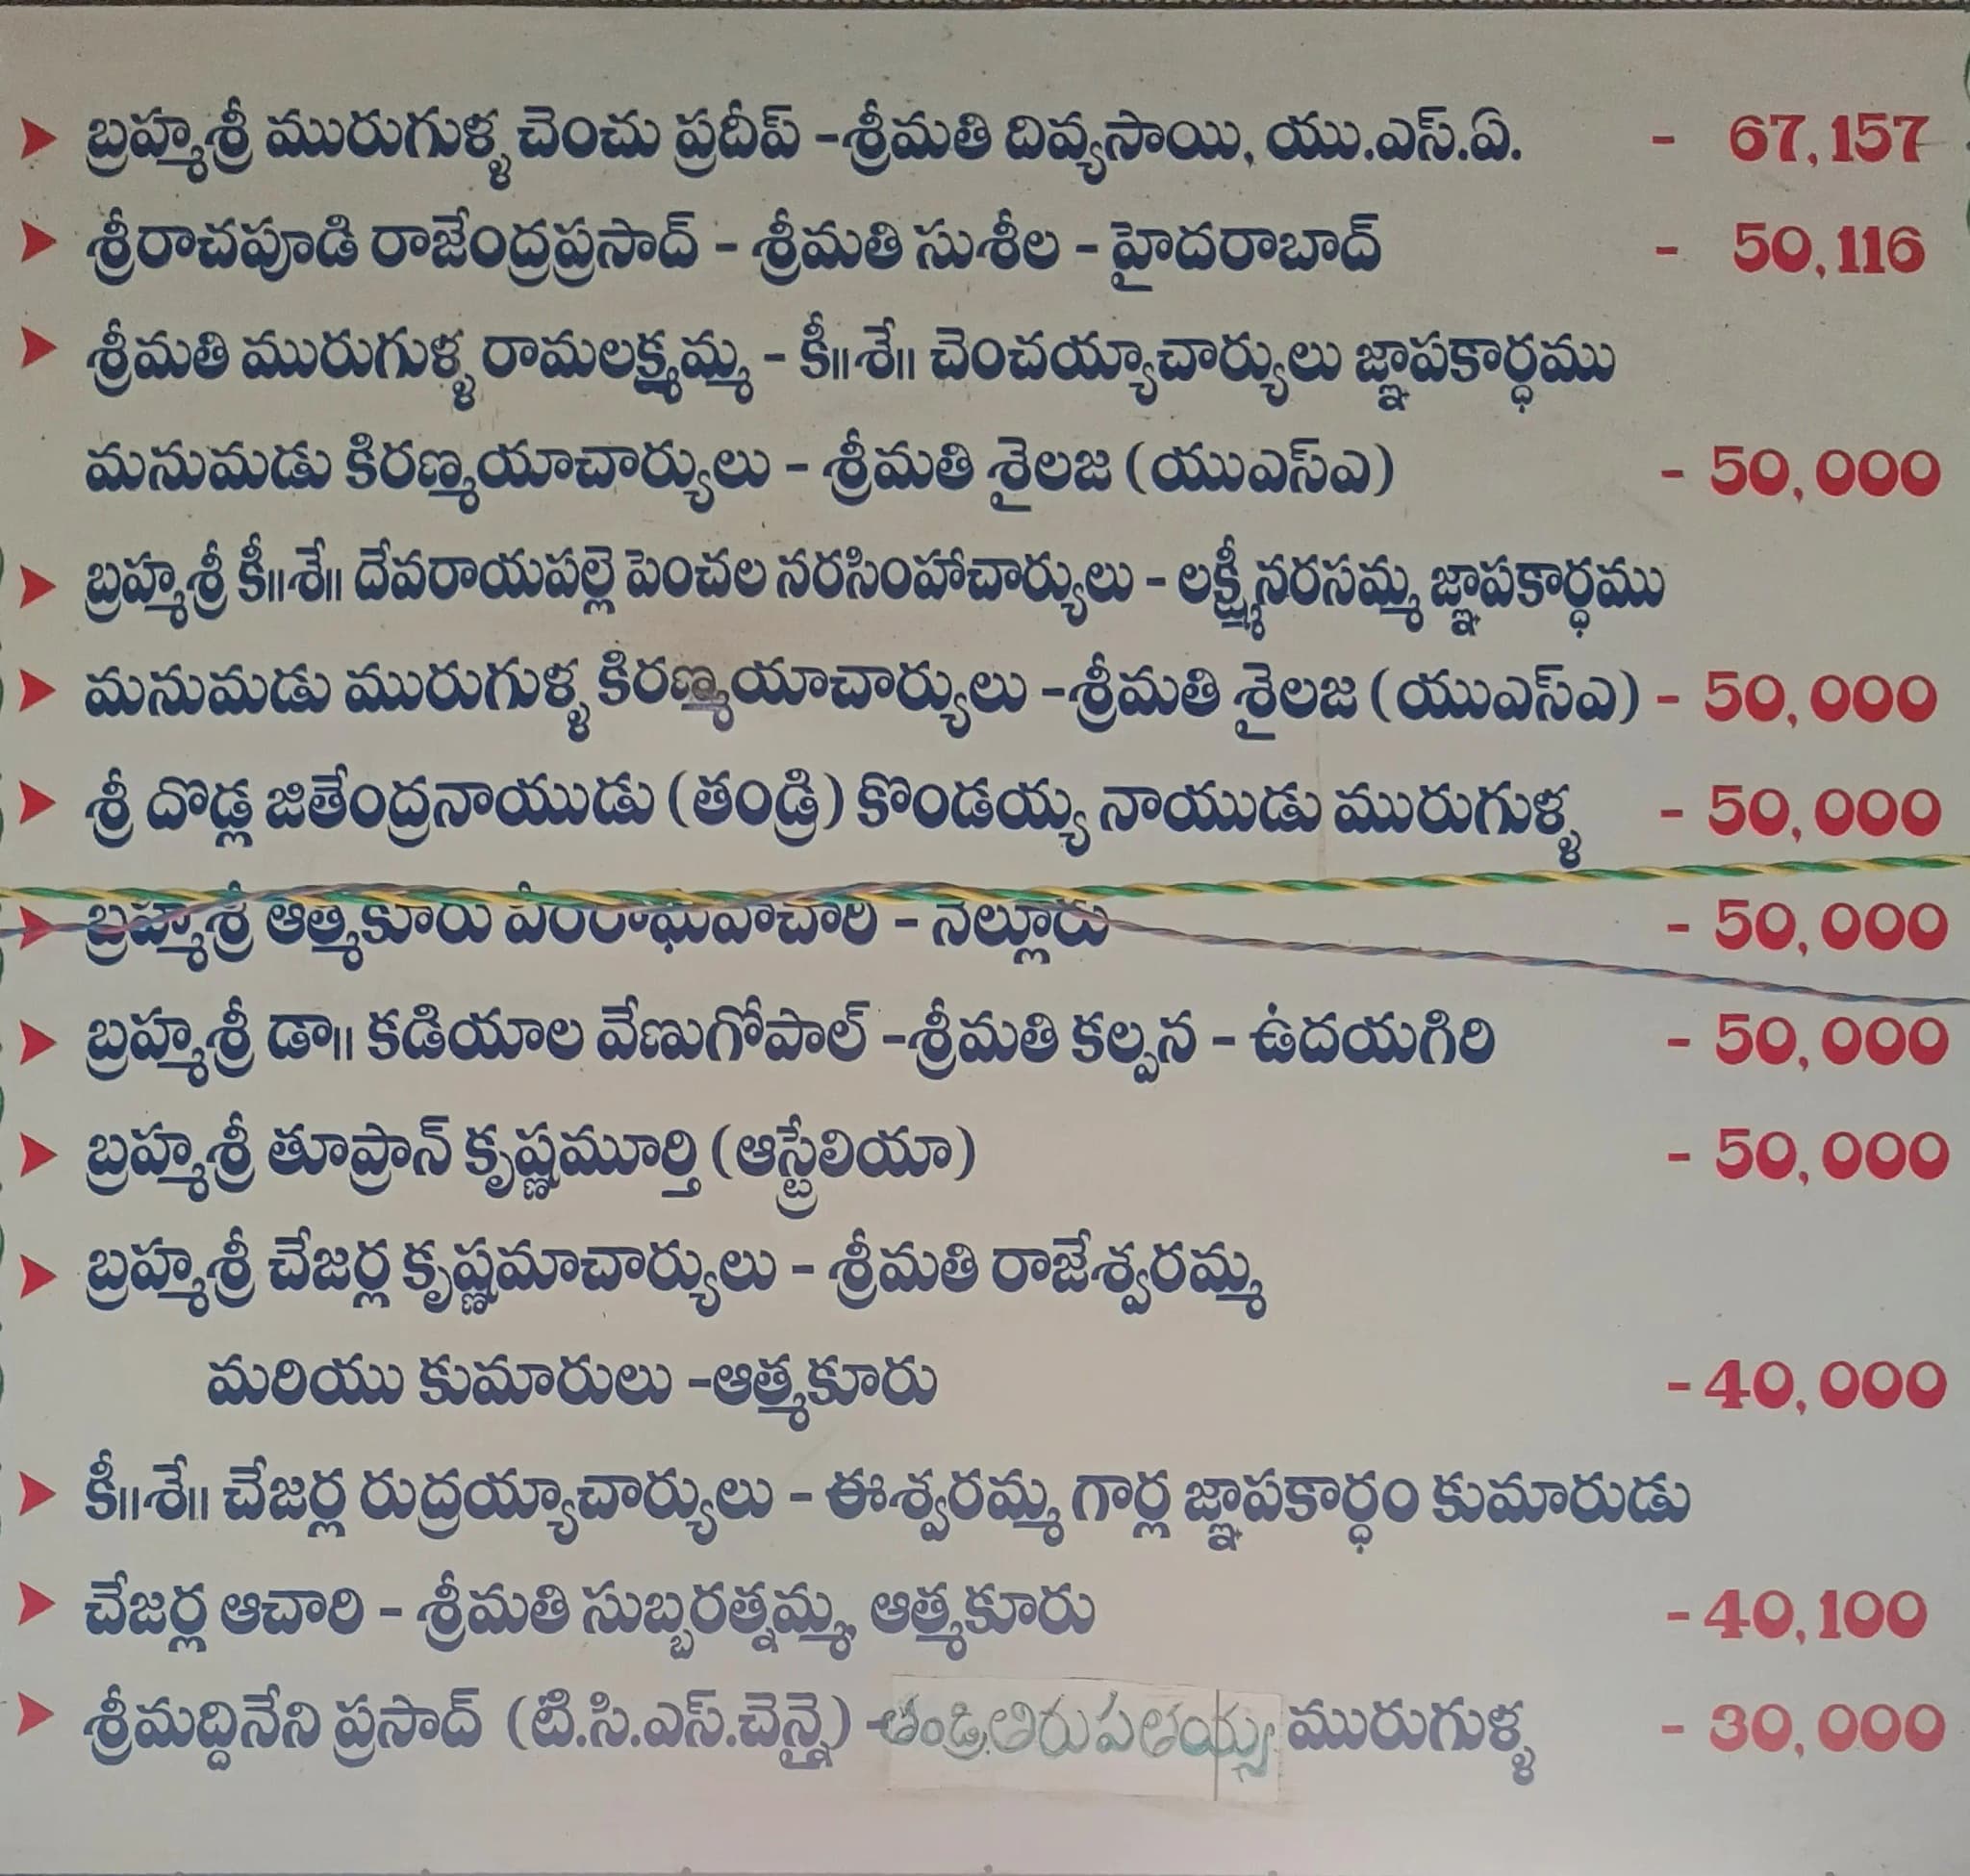 ➤ బ్రహ్మశ్రీ మురుగుళ్ళ చెంచు ప్రదీప్ -శ్రీమతి దివ్యసాయి, యు.ఎస్.ఏ. - 67,157
➤ శ్రీరాచపూడి రాజేంద్రప్రసాద్ - శ్రీమతి సుశీల - హైదరాబాద్ - 50,116
➤ శ్రీమతి మురుగుళ్ళ రామలక్ష్మమ్మ - కీ॥శే॥ చెంచయ్యాచార్యులు జ్ఞాపకార్ధము
మనుమడు కిరణ్మయాచార్యులు - శ్రీమతి శైలజ (యుఎస్ఎ) - 50,000
➤ బ్రహ్మశ్రీ కీ॥శే॥ దేవరాయపల్లె పెంచల నరసింహాచార్యులు - లక్ష్మీనరసమ్మ జ్ఞాపకార్ధము
➤ మనుమడు మురుగుళ్ళ కిరణ్మయాచార్యులు -శ్రీమతి శైలజ (యుఎస్ఎ) - 50,000
➤ శ్రీ దొడ్ల జితేంద్రనాయుడు (తండ్రి) కొండయ్య నాయుడు మురుగుళ్ళ - 50,000
➤ బ్రహ్మశ్రీ ఆత్మకూరు - నెల్లూరు - 50,000
➤ బ్రహ్మశ్రీ డా॥ కడియాల వేణుగోపాల్ -శ్రీమతి కల్పన - ఉదయగిరి - 50,000
➤ బ్రహ్మశ్రీ తూప్రాన్ కృష్ణమూర్తి (ఆస్ట్రేలియా) - 50,000
➤ బ్రహ్మశ్రీ చేజర్ల కృష్ణమాచార్యులు - శ్రీమతి రాజేశ్వరమ్మ
మరియు కుమారులు -ఆత్మకూరు - 40,000
➤ కీ॥శే॥ చేజర్ల రుద్రయ్యాచార్యులు - ఈశ్వరమ్మ గార్ల జ్ఞాపకార్ధం కుమారుడు
➤ చేజర్ల ఆచారి - శ్రీమతి సుబ్బరత్నమ్మ, ఆత్మకూరు - 40,100
➤ శ్రీమద్దినేని ప్రసాద్ (టి.సి.ఎస్.చెన్నై) -తండ్రి,తిరుపతయ్య మురుగుళ్ళ - 30,000